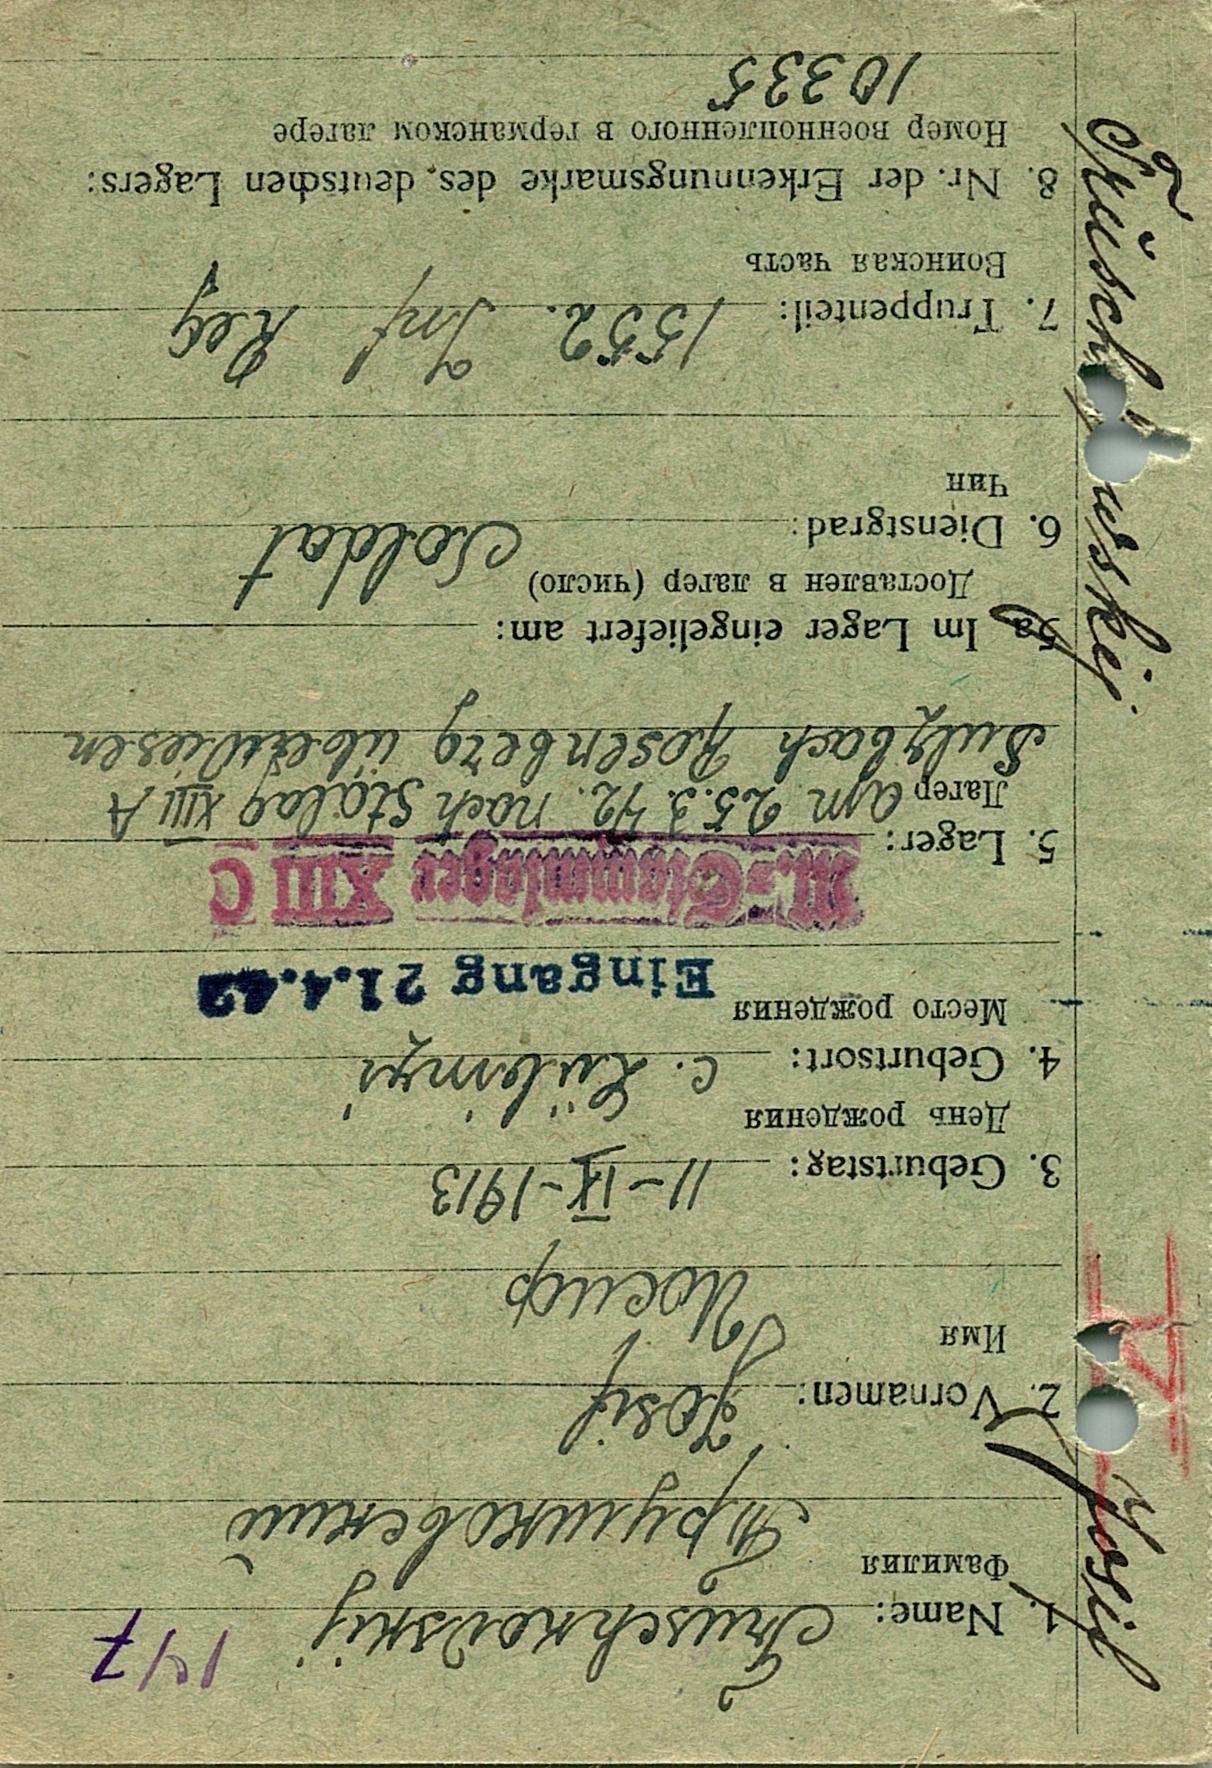 147
1. Name: Trüschkowskij
Фамилия
Трушковский
2. Vornamen: Josif
Имя
Иосиф
3. Geburtstag: 11-IX-1913
День рождения
4. Geburtsort: с.
Место рождения
Eingang 21.4.42
M.=Stammlager XIII C
5. Lager: am 25.3.42. nach Stalag XIII A
Лагер
Sulzbach Rosenberg überwiesen
5a Im Lager eingeliefert am:
Доставлен в лагер (число)
6. Dienstgrad: Soldat
Чин
7. Truppenteil: 1552. Inf Reg
Воинская часть
8. Nr. der Erkennungsmarke des deutschen Lagers:
Номер военнопленного в германском лагере
10335
Josif